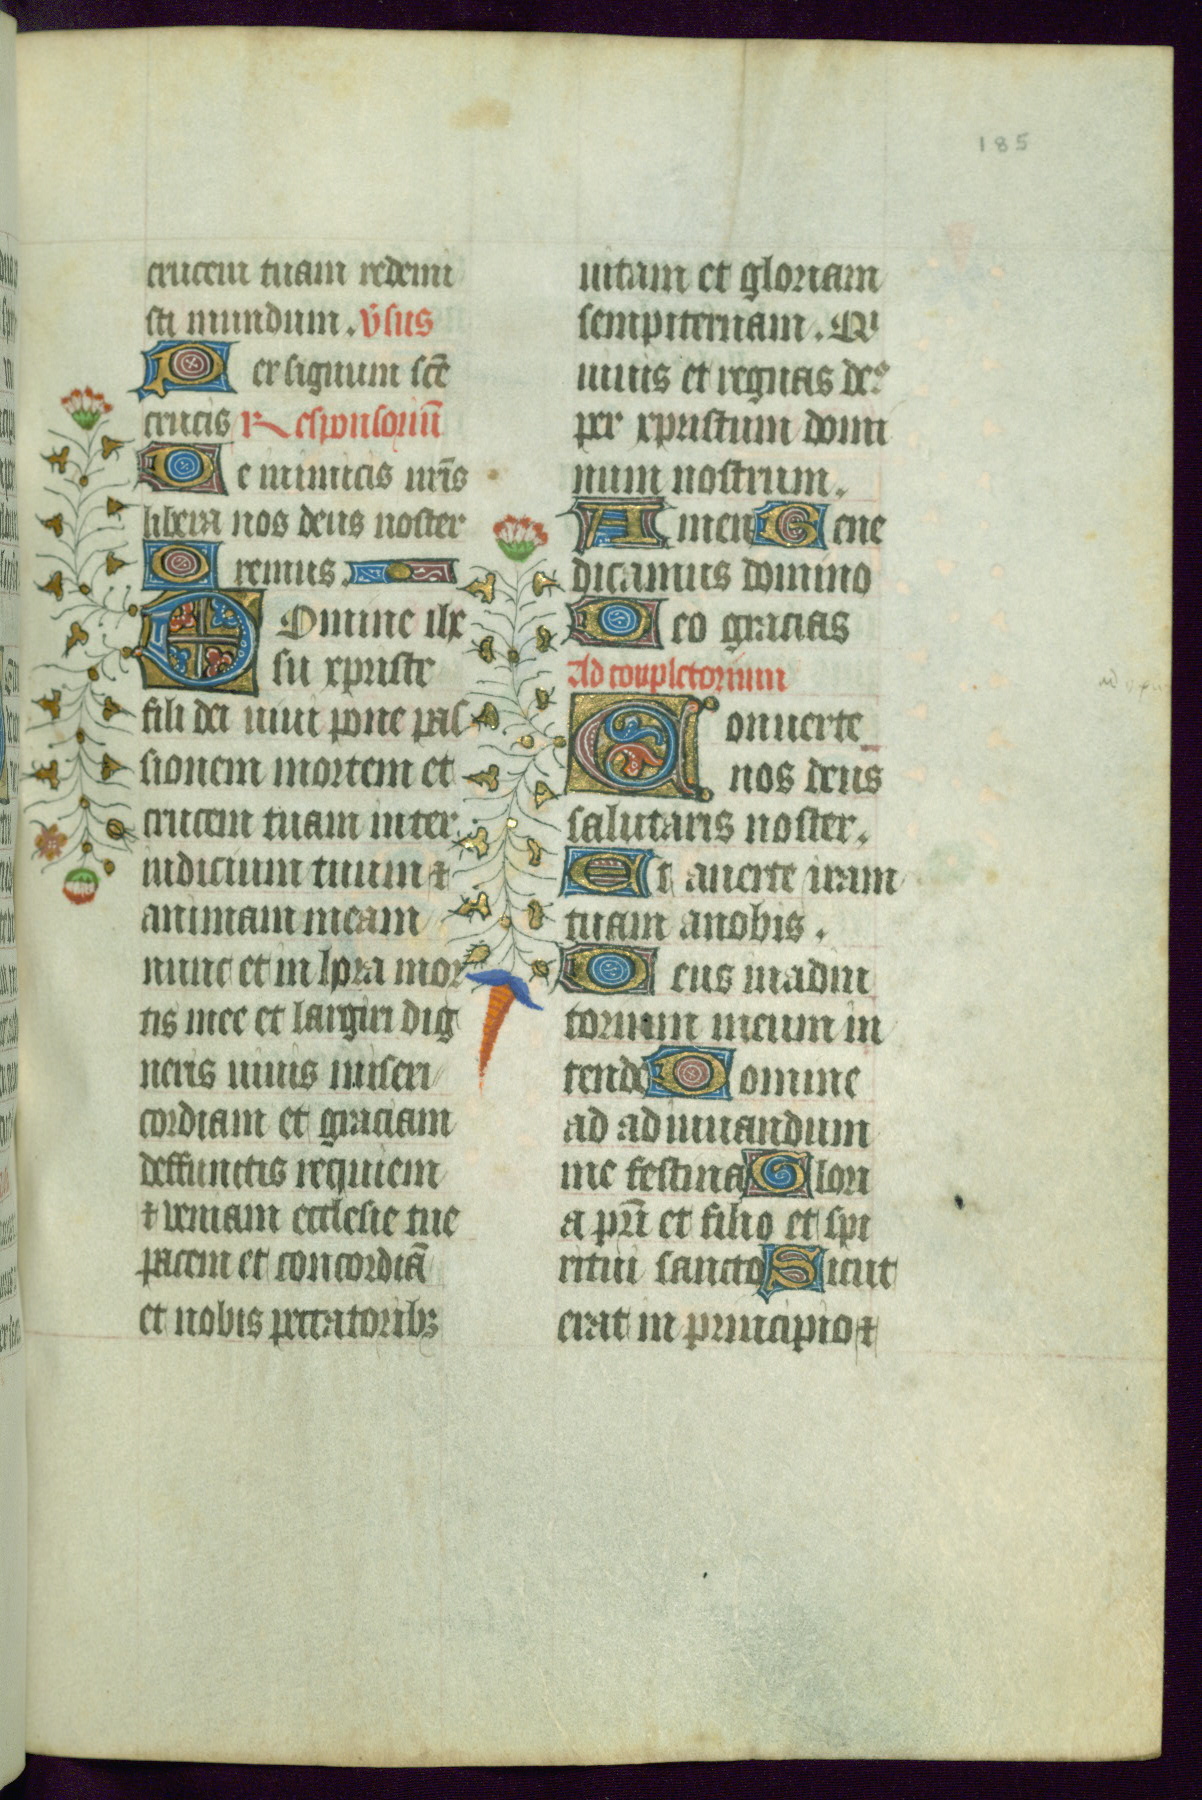 185
crucem tuam redemi
sti mundum. v̄sus
Per signum scē
crucis Responsoriū
De inimicis nr̄is
libera nos deus noster
Oremus.
Domine ihe
su xpriste
fili dei uiui pone pas
sionem mortem et
crucem tuam inter
iudicium tuum ⁊
animam meam
nunc et in hora mor
tis mee et largiri dig
neris uiuis miseri
cordiam et graciam
deffunctis requiem
⁊ ueniam ecclesie tue
pacem et concordiā
et nobis peccatoribꝫ
uitam et gloriam
sempiternam. Qui
uiuis et regnas deꝰ
per xpristum domi
num nostrum.
Amen Bene
dicamus domino
Deo gracias
Ad conpletorium
Conuerte
nos deus
salutaris noster.
Et auerte iram
tuam anobis.
Deus inadiu
torium meum in
tende Domine
ad adiuuandum
me festina Glori
a pr̄i et filio et spi
ritui sancto Sicut
erat in principio ⁊